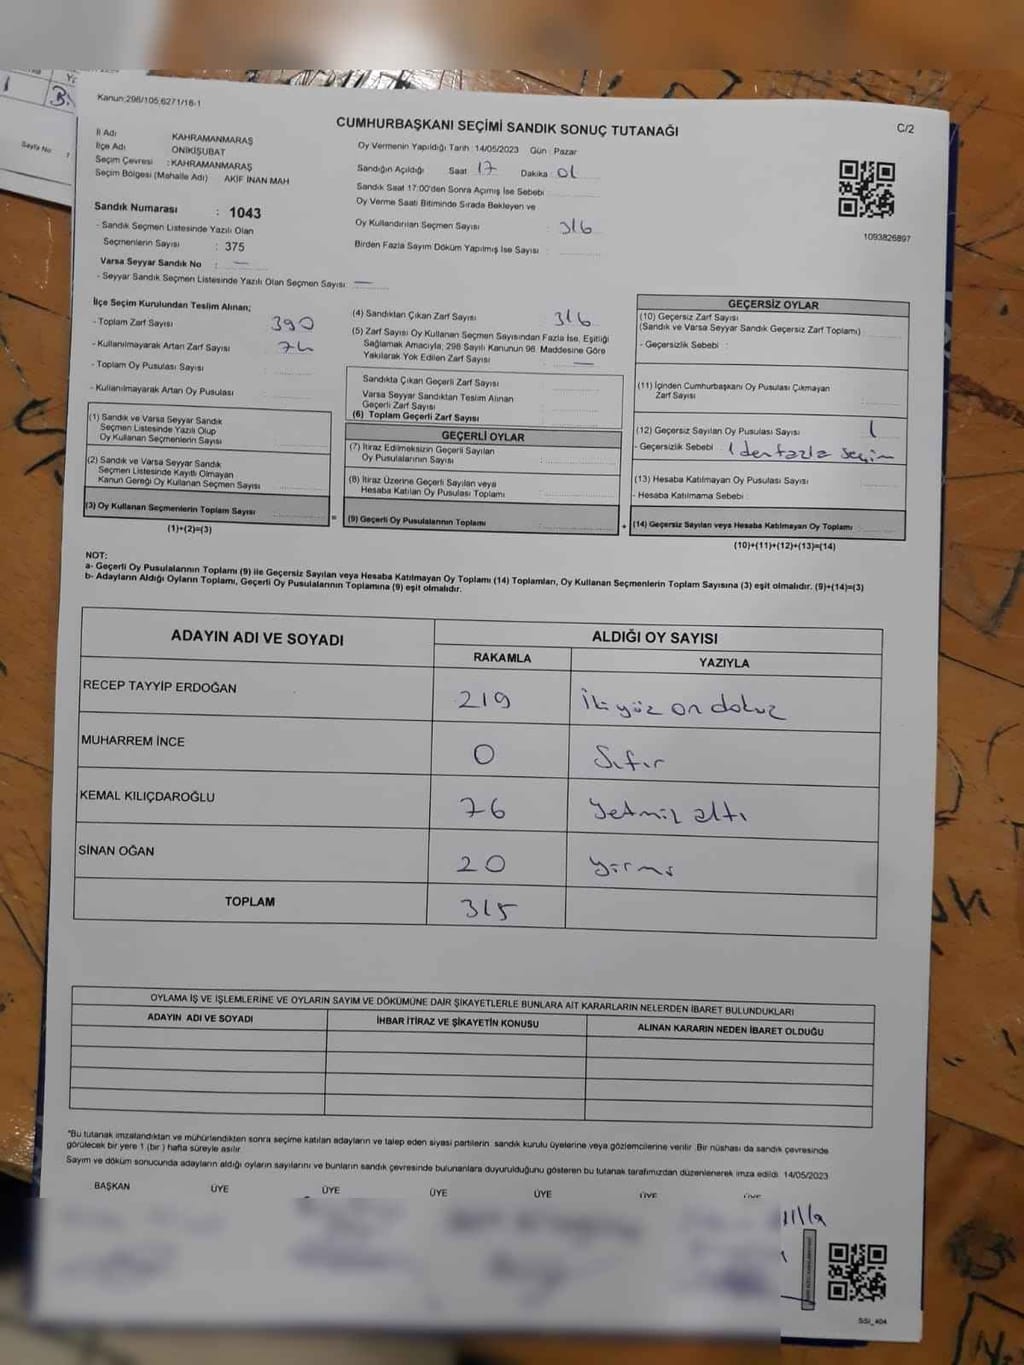 Kanun:298/105;6271/18-1
CUMHURBAŞKANI SEÇİMİ SANDIK SONUÇ TUTANAĞI
C/2
İl Adı KAHRAMANMARAŞ
İlçe Adı ONİKİŞUBAT
Seçim Çevresi : KAHRAMANMARAŞ
Seçim Bölgesi (Mahalle Adı) AKİF İNAN MAH
Sandık Numarası : 1043
- Sandık Seçmen Listesinde Yazılı Olan
Seçmenlerin Sayısı : 375
Varsa Seyyar Sandık No : —
- Seyyar Sandık Seçmen Listesinde Yazılı Olan Seçmen Sayısı: —
Oy Vermenin Yapıldığı Tarih : 14/05/2023 Gün : Pazar
Sandığın Açıldığı Saat 17 Dakika 01
Sandık Saat 17:00'den Sonra Açımış İse Sebebi
Oy Verme Saati Bitiminde Sırada Bekleyen ve
Oy Kullandırılan Seçmen Sayısı : 316
Birden Fazla Sayım Döküm Yapılmış İse Sayısı :
1093826897
İlçe Seçim Kurulundan Teslim Alınan;
- Toplam Zarf Sayısı 390
- Kullanılmayarak Artan Zarf Sayısı 74
- Toplam Oy Pusulası Sayısı :
- Kullanılmayarak Artan Oy Pusulası
(1) Sandık ve Varsa Seyyar Sandık
Seçmen Listesinde Yazılı Olup
Oy Kullanan Seçmenlerin Sayısı
(2) Sandık ve Varsa Seyyar Sandık
Seçmen Listesinde Kayıtlı Olmayan
Kanun Gereği Oy Kullanan Seçmen Sayısı
(3) Oy Kullanan Seçmenlerin Toplam Sayısı
(1)+(2)=(3)
(4) Sandıktan Çıkan Zarf Sayısı 316
(5) Zarf Sayısı Oy Kullanan Seçmen Sayısından Fazla İse, Eşitliği
Sağlamak Amacıyla; 298 Sayılı Kanunun 98. Maddesine Göre
Yakılarak Yok Edilen Zarf Sayısı —
Sandıkta Çıkan Geçerli Zarf Sayısı
Varsa Seyyar Sandıktan Teslim Alınan
Geçerli Zarf Sayısı
(6) Toplam Geçerli Zarf Sayısı
=
GEÇERLİ OYLAR
(7) İtiraz Edilmeksizin Geçerli Sayılan
Oy Pusulalarının Sayısı :
(8) İtiraz Üzerine Geçerli Sayılan veya
Hesaba Katılan Oy Pusulası Toplamı
(9) Geçerli Oy Pusulalarının Toplamı
+
GEÇERSİZ OYLAR
(10) Geçersiz Zarf Sayısı
(Sandık ve Varsa Seyyar Sandık Geçersiz Zarf Toplamı)
- Geçersizlik Sebebi :
(11) İçinden Cumhurbaşkanı Oy Pusulası Çıkmayan
Zarf Sayısı
(12) Geçersiz Sayılan Oy Pusulası Sayısı 1
- Geçersizlik Sebebi 1 den fazla seçim
(13) Hesaba Katılmayan Oy Pusulası Sayısı
- Hesaba Katılmama Sebebi :
(14) Geçersiz Sayılan veya Hesaba Katılmayan Oy Toplamı
(10)+(11)+(12)+(13)=(14)
NOT:
a- Geçerli Oy Pusulalarının Toplamı (9) ile Geçersiz Sayılan veya Hesaba Katılmayan Oy Toplamı (14) Toplamları, Oy Kullanan Seçmenlerin Toplam Sayısına (3) eşit olmalıdır. (9)+(14)=(3)
b- Adayların Aldığı Oyların Toplamı, Geçerli Oy Pusulalarının Toplamına (9) eşit olmalıdır.
ADAYIN ADI VE SOYADI ALDIĞI OY SAYISI
RAKAMLA YAZIYLA
RECEP TAYYİP ERDOĞAN 219 İkiyüz on dokuz
MUHARREM İNCE 0 Sıfır
KEMAL KILIÇDAROĞLU 76 Yetmiş altı
SİNAN OĞAN 20 yirmi
TOPLAM 315
OYLAMA İŞ VE İŞLEMLERİNE VE OYLARIN SAYIM VE DÖKÜMÜNE DAİR ŞİKAYETLERLE BUNLARA AİT KARARLARIN NELERDEN İBARET BULUNDUKLARI
ADAYIN ADI VE SOYADI İHBAR İTİRAZ VE ŞİKAYETİN KONUSU ALINAN KARARIN NEDEN İBARET OLDUĞU
"Bu tutanak imzalandıktan ve mühürlendikten sonra seçime katılan adayların ve talep eden siyasi partilerin sandık kurulu üyelerine veya gözlemcilerine verilir. Bir nüshası da sandık çevresinde
görülecek bir yere 1 (bir ) hafta süreyle asılır.
Sayım ve döküm sonucunda adayların aldığı oyların sayılarını ve bunların sandık çevresinde bulunanlara duyurulduğunu gösteren bu tutanak tarafımızdan düzenlenerek imza edildi. 14/05/2023
BAŞKAN ÜYE ÜYE ÜYE ÜYE ÜYE ÜYE
SSI_404